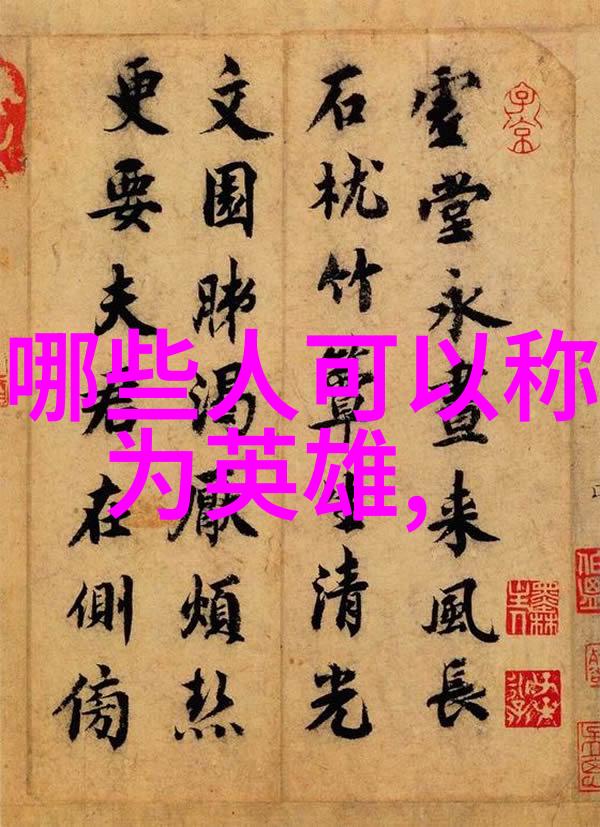 虛堂永晝来風長
石枕竹簟生清光
文園肺渴厭煩熱
更要夫君在側傍
哪些人可以称
为英雄,